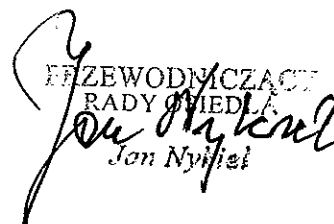 PRZEWODNICZĄCY
RADY OSIEDLA
Jan Nykiel
Jan Nykiel